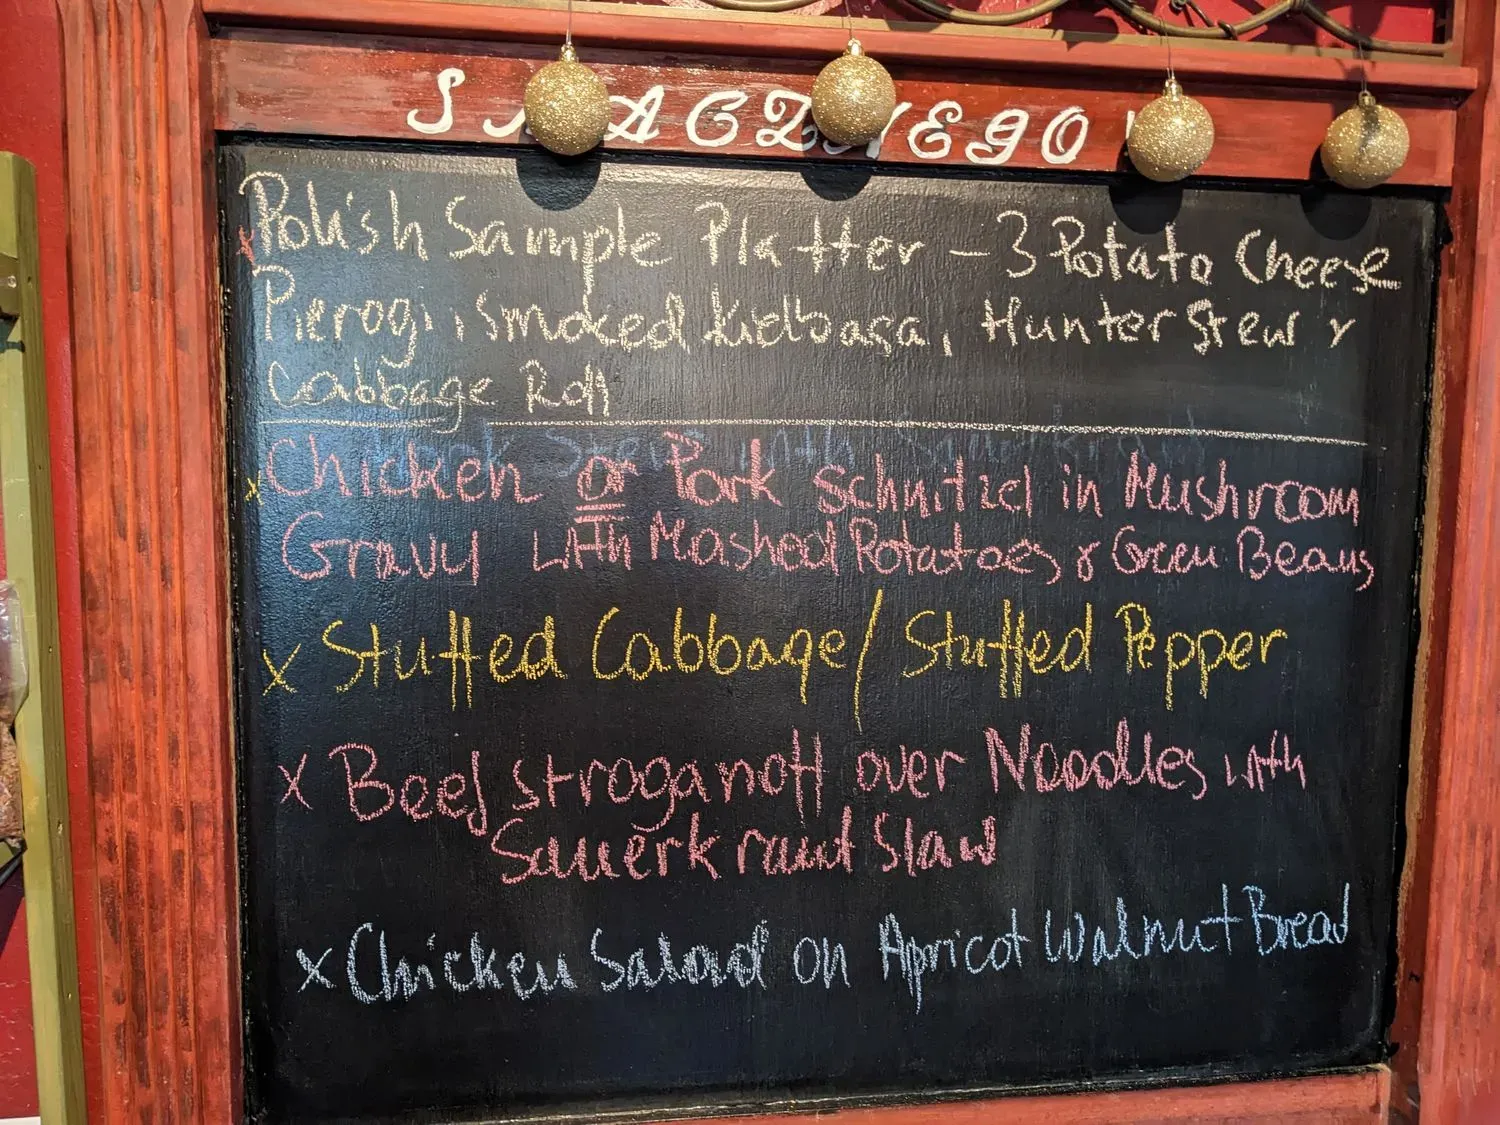 SMACZNEGO!
x Polish Sample Platter - 3 Potato Cheese
Pierogi, smoked kielbasa, Hunter Stew &
Cabbage Roll
x Chicken or Pork Schnitzel in Mushroom
Gravy with Mashed Potatoes & Green Beans
x Stuffed Cabbage/Stuffed Pepper
x Beef stroganoff over Noodles with
Sauerkraut Slaw
x Chicken Salad on Apricot Walnut Bread